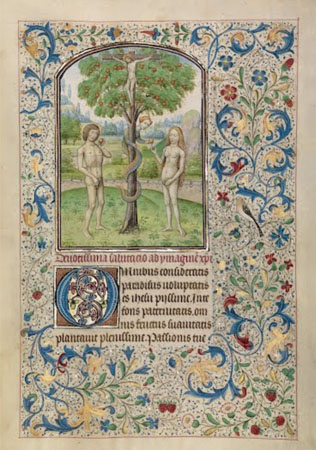 Devotissima salutacio ad ymaginē xp̄i
Omnibus consideratis
paradisus voluptatis
es ihesu pyssime. Inte
tons paternitatis, om
nis fructus suavitatis
plantavit plenissime. Passionis tue